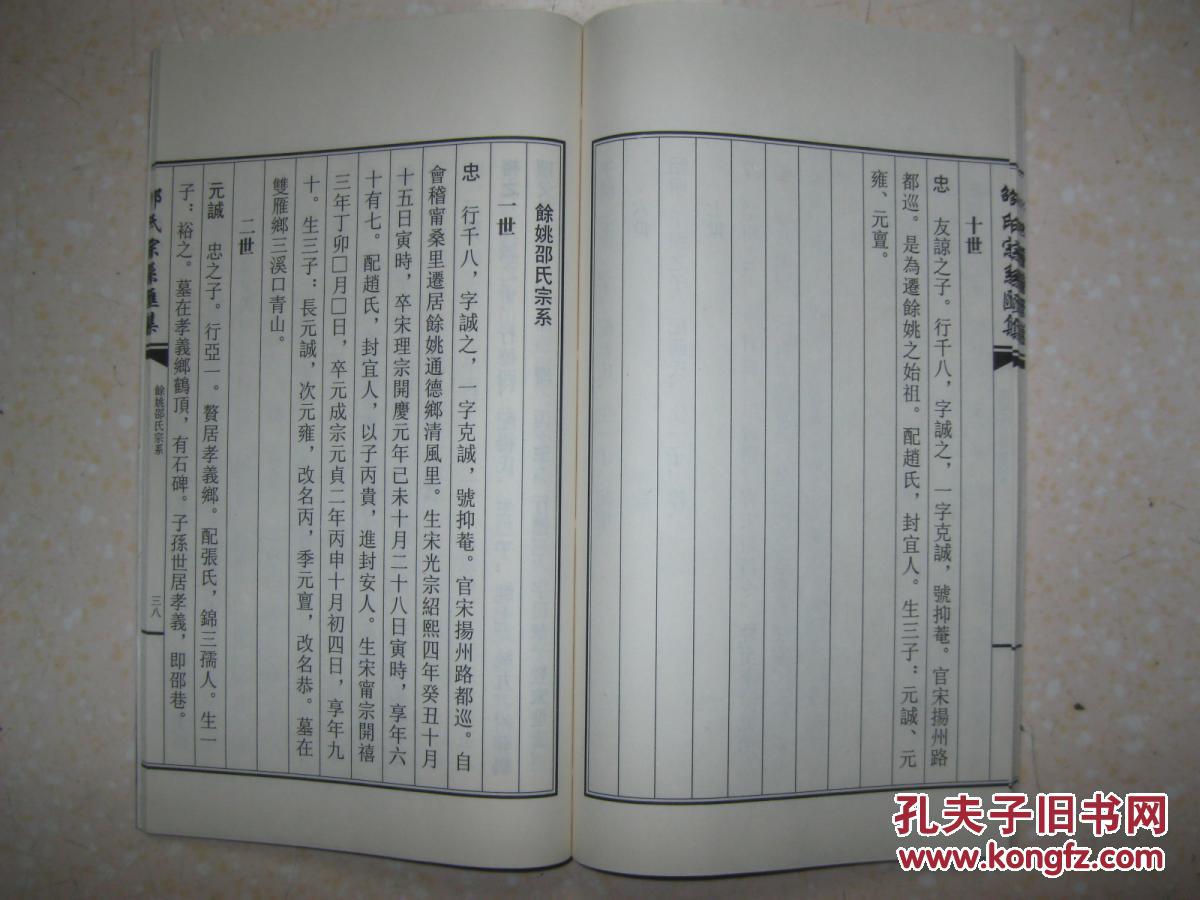 十世
忠　友諒之子。行千八，字誠之，一字克誠，號抑菴。官宋揚州路
都巡。是為遷餘姚之始祖。配趙氏，封宜人。生三子：元誠、元
雍、元亶。
餘姚邵氏宗系
一世
忠　行千八，字誠之，一字克誠，號抑菴。官宋揚州路都巡。自
會稽甯桑里遷居餘姚通德鄉清風里。生宋光宗紹熙四年癸丑十月
十五日寅時，卒宋理宗開慶元年己未十月二十八日寅時，享年六
十有七。配趙氏，封宜人，以子丙貴，進封安人。生宋甯宗開禧
三年丁卯□月□日，卒元成宗元貞二年丙申十月初四日，享年九
十。生三子：長元誠，次元雍，改名丙，季元亶，改名恭。墓在
雙雁鄉三溪口青山。
二世
元誠　忠之子。行亞一。贅居孝義鄉。配張氏，錦三孺人。生一
子：裕之。墓在孝義鄉鶴頂，有石碑。子孫世居孝義，即邵巷。
餘姚邵氏宗系
三八
孔夫子旧书网
www.kongfz.com